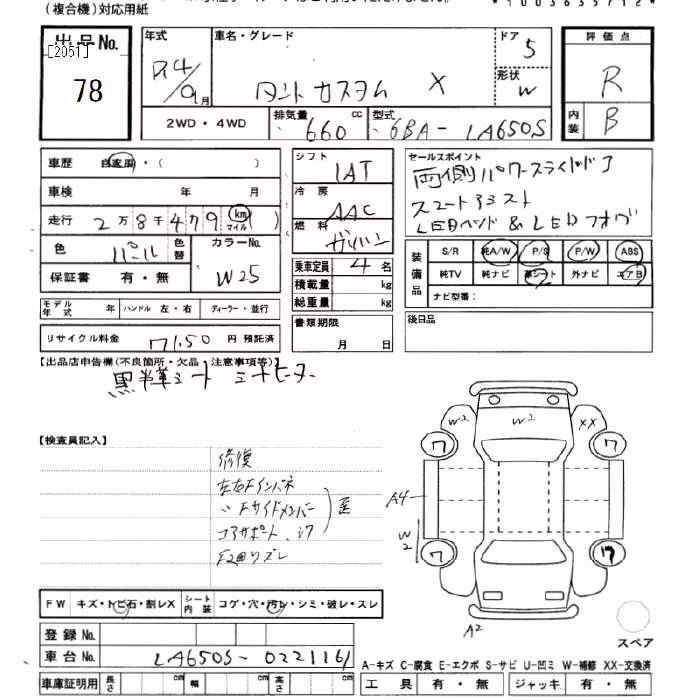 (複合機)対応用紙
*1003635712*
出品No.
[2051]
78
年式 車名・グレード ドア 5
R4/9月 タント カスタム X 形状 W
2WD・4WD 排気量 660 cc 型式 6BA- LA650S
評価点
R
内装 B
車歴 自家用・( )
車検 年 月
走行 2万8千479 km マイル
色 パール 色替 カラーNo. W25
保証書 有・無
モデル年式 年 ハンドル 左・右 ディーラー・並行
リサイクル料金 7150 円 預託済
シフト IAT
冷房 AAC
燃料 ガソリン
乗車定員 4 名
積載量 kg
総重量 kg
書類期限
月 日
セールスポイント
両側パワースライドドア
スマートアシスト
LEDヘッド & LEDフォグ
装備品 S/R 純A/W P/S P/W ABS
純TV 純ナビ 革シート 外ナビ エアB
ナビ型番:
後日品
【出品店申告欄(不良箇所・欠品・注意事項等)】
黒半革シート シートヒーター
【検査員記入】
修復
左右Fインパネ
〃 Fサイドメンバー
コアサポート
W2 XX
7 7
A4
W2
7 7
A2
スペア
FW キズ・トビ石・割レX シート内装 コゲ・穴・汚レ・シミ・破レ・スレ
登録 No.
車台 No. LA650S-0221161
車庫証明用 長さ 幅 高さ
A-キズ C-腐食 E-エクボ S-サビ U-凹ミ W-補修 XX-交換済
工具 有・無 ジャッキ 有・無